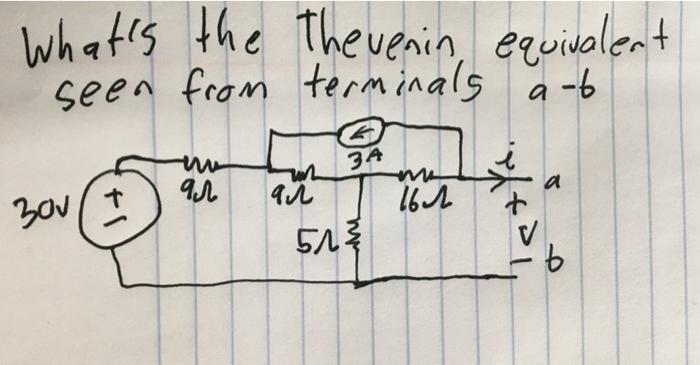 What's the Thevenin equivalent
seen from terminals a-b
3A
i
30V
+
-
9Ω
9Ω
16Ω
a
+
5Ω
V
- b